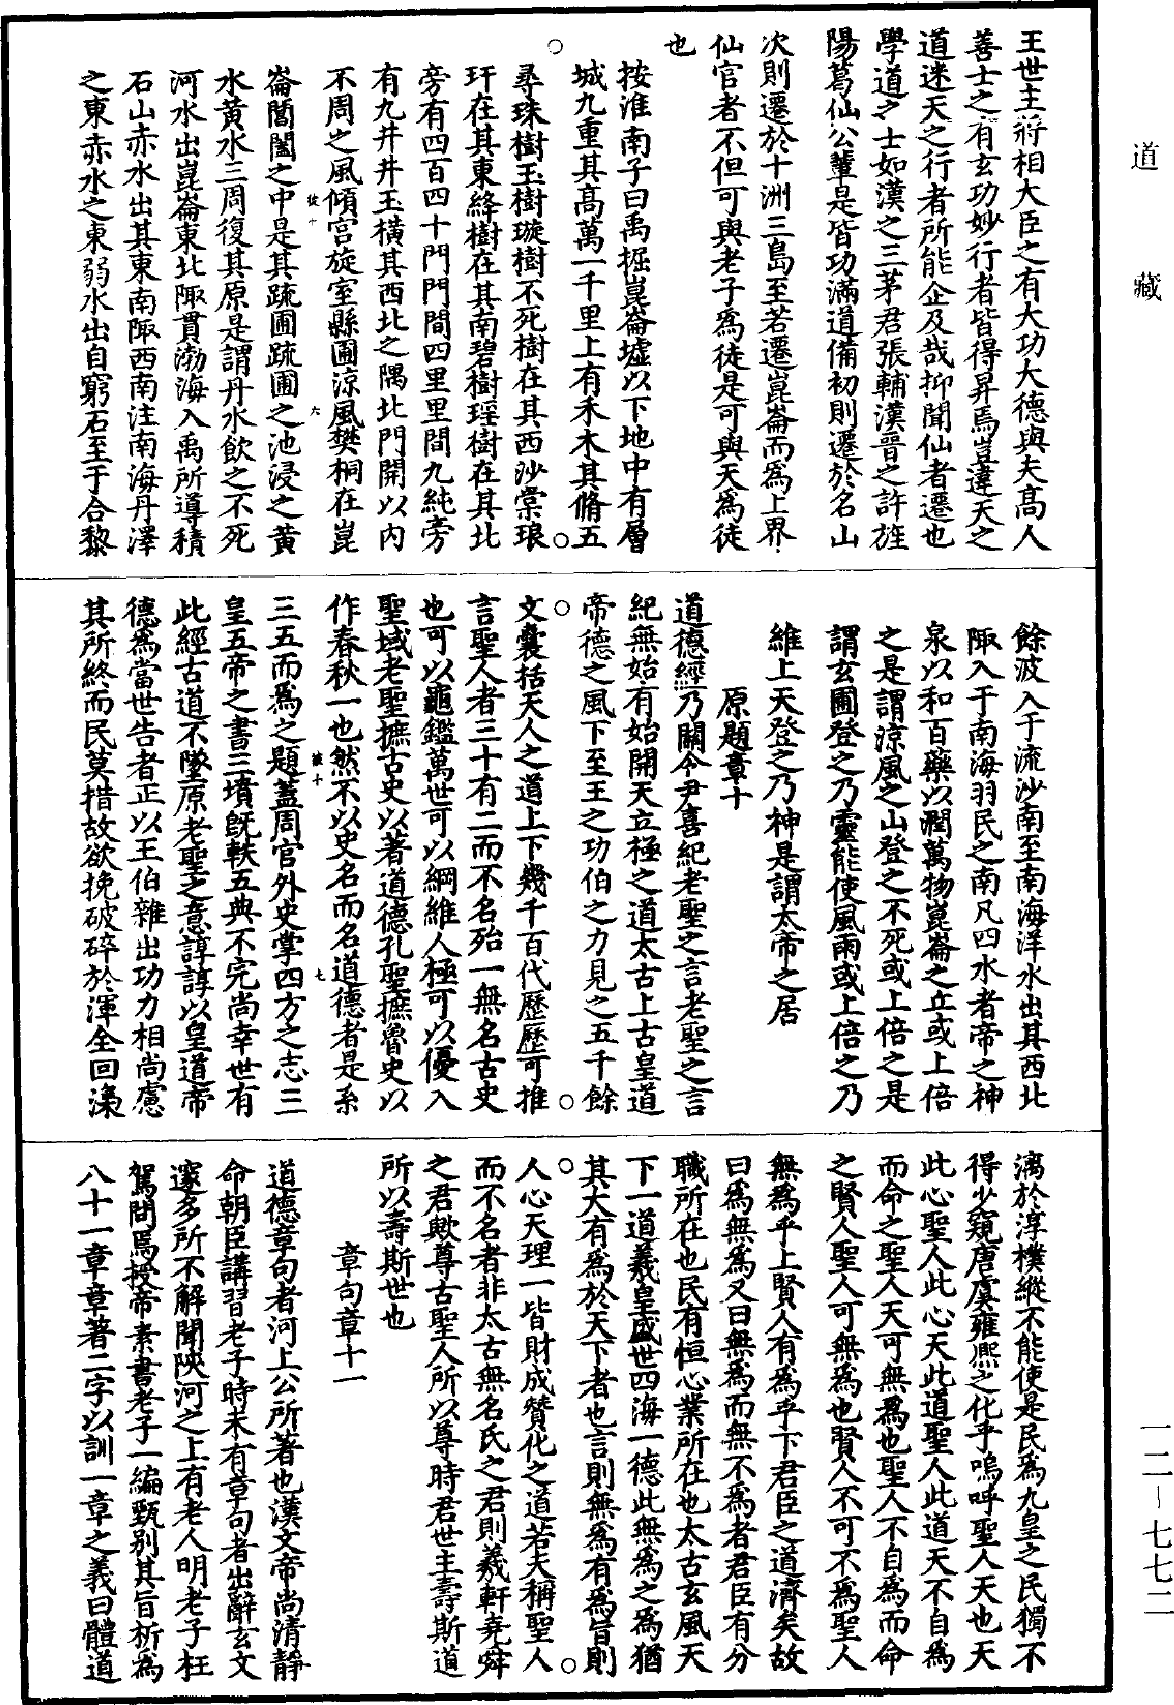 道藏
王世主將相大臣之有大功大德與夫高人
善士之有玄功妙行者皆得昇焉豈違天之
道迷天之行者所能企及哉抑聞仙者遷也
學道之士如漢之三茅君張輔漢晉之許旌
陽葛仙公輩是皆功滿道備初則遷於名山
次則遷於十洲三島至若遷崑崙而爲上界
仙官者不但可與老子爲徒是可與天爲徒
也
按淮南子曰禹掘崑崙墟以下地中有層
城九重其高萬一千里上有木禾其脩五
尋珠樹玉樹璇樹不死樹在其西沙棠琅
玕在其東絳樹在其南碧樹瑤樹在其北
旁有四百四十門門間四里里間九純旁
有九井井玉橫其西北之隅北門開以內
不周之風傾宮旋室縣圃涼風樊桐在崑
崙閶闔之中是其疏圃疏圃之池浸之黃
水黃水三周復其原是謂丹水飲之不死
河水出崑崙東北陬貫渤海入禹所導積
石山赤水出其東南陬西南注南海丹澤
之東赤水之東弱水出自窮石至于合黎
餘波入于流沙南至南海洋水出其西北
陬入于南海羽民之南凡四水者帝之神
泉以和百藥以潤萬物崑崙之丘或上倍
之是謂涼風之山登之不死或上倍之是
謂玄圃登之乃靈能使風雨或上倍之乃
維上天登之乃神是謂太帝之居
原題章十
道德經乃關令尹喜紀老聖之言老聖之言
紀無始有始開天立極之道太古上古皇道
帝德之風下至王之功伯之力見之五千餘
文囊括天人之道上下幾千百代歷歷可推
言聖人者三十有二而不名殆一無名古史
也可以龜鑑萬世可以綱維人極可以優入
聖域老聖摭古史以著道德孔聖摭魯史以
作春秋一也然不以史名而名道德者是系
三五而爲之題蓋周官外史掌四方之志三
皇五帝之書三墳旣軼五典不完尚幸世有
此經古道不墜原老聖之意諄諄以皇道帝
德爲當世告者正以王伯雜出功力相尚慮
其所終而民莫措故欲挽破碎於渾全回澆
漓於淳樸縱不能使是民爲九皇之民獨不
得少窺唐虞雍熙之化乎嗚呼聖人天也天
此心聖人此心天此道聖人此道天不自爲
而命之聖人天可無爲也聖人不自爲而命
之賢人聖人可無爲也賢人不可不爲聖人
無爲乎上賢人有爲乎下君臣之道濟矣故
曰爲無爲又曰無爲而無不爲者君臣有分
職所在也民有恒心業所在也太古玄風天
下一道羲皇盛世四海一德此無爲之爲猶
其大有爲於天下者也言則無爲有爲旨則
人心天理一皆財成贊化之道若夫稱聖人
而不名者非太古無名氏之君則羲軒堯舜
之君歟尊古聖人所以尊時君世主壽斯道
所以壽斯世也
章句章十一
道德章句者河上公所著也漢文帝尚清靜
命朝臣講習老子時未有章句者出辭玄文
邃多所不解聞陝河之上有老人明老子枉
駕問焉授帝素書老子一編甄別其旨析爲
八十一章章著二字以訓一章之義曰體道
一二－七七二